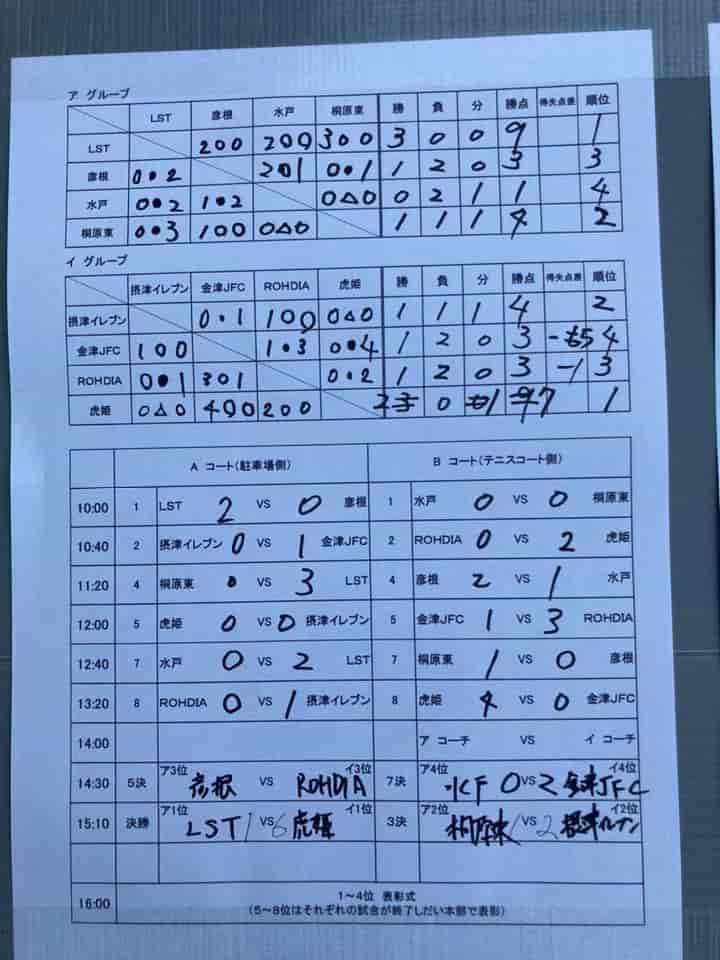 ア グループ
LST 彦根 水戸 桐原東 勝 負 分 勝点 得失点差 順位
LST 2○0 2○0 3○0 3 0 0 9 1
彦根 0●2 2○1 0●1 1 2 0 3 3
水戸 0●2 1●2 0△0 0 2 1 1 4
桐原東 0●3 1○0 0△0 1 1 1 4 2
イ グループ
摂津イレブン 金津JFC ROHDIA 虎姫 勝 負 分 勝点 得失点差 順位
摂津イレブン 0●1 1○0 0△0 1 1 1 4 2
金津JFC 1○0 1●3 0●4 1 2 0 3 -5 4
ROHDIA 0●1 3○1 0●2 1 2 0 3 -1 3
虎姫 0△0 4○0 2○0 2 0 1 7 1
A コート(駐車場側) B コート(テニスコート側)
10:00 1 LST 2 VS 0 彦根 1 水戸 0 VS 0 桐原東
10:40 2 摂津イレブン 0 VS 1 金津JFC 2 ROHDIA 0 VS 2 虎姫
11:20 4 桐原東 0 VS 3 LST 4 彦根 2 VS 1 水戸
12:00 5 虎姫 0 VS 0 摂津イレブン 5 金津JFC 1 VS 3 ROHDIA
12:40 7 水戸 0 VS 2 LST 7 桐原東 1 VS 0 彦根
13:20 8 ROHDIA 0 VS 1 摂津イレブン 8 虎姫 4 VS 0 金津JFC
14:00 ア コーチ VS イ コーチ
14:30 5決 ア3位 彦根 VS ROHDIA イ3位 7決 ア4位 水戸 0 VS 2 金津JFC イ4位
15:10 決勝 ア1位 LST 1 VS 6 虎姫 イ1位 3決 ア2位 桐原東 1 VS 2 摂津イレブン イ2位
16:00 1～4位 表彰式
(5～8位はそれぞれの試合が終了しだい本部で表彰)